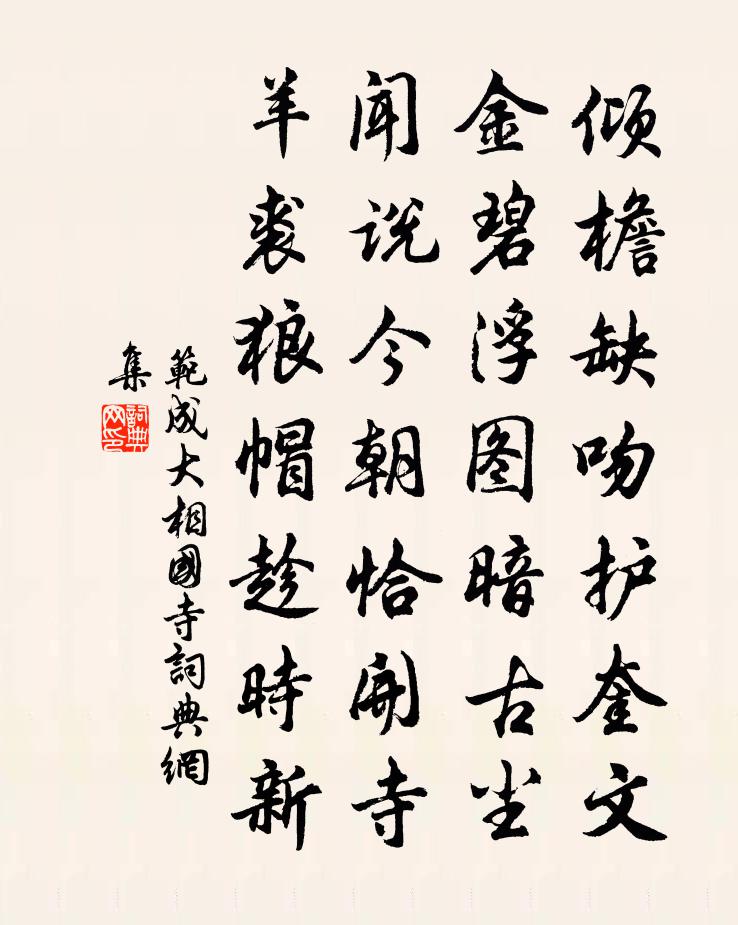 倾檐缺吻护奎文
金碧浮图暗古尘
闻说今朝恰開寺
羊裘狼帽趁時新
範成大相國寺詞典網
集
詞典网印